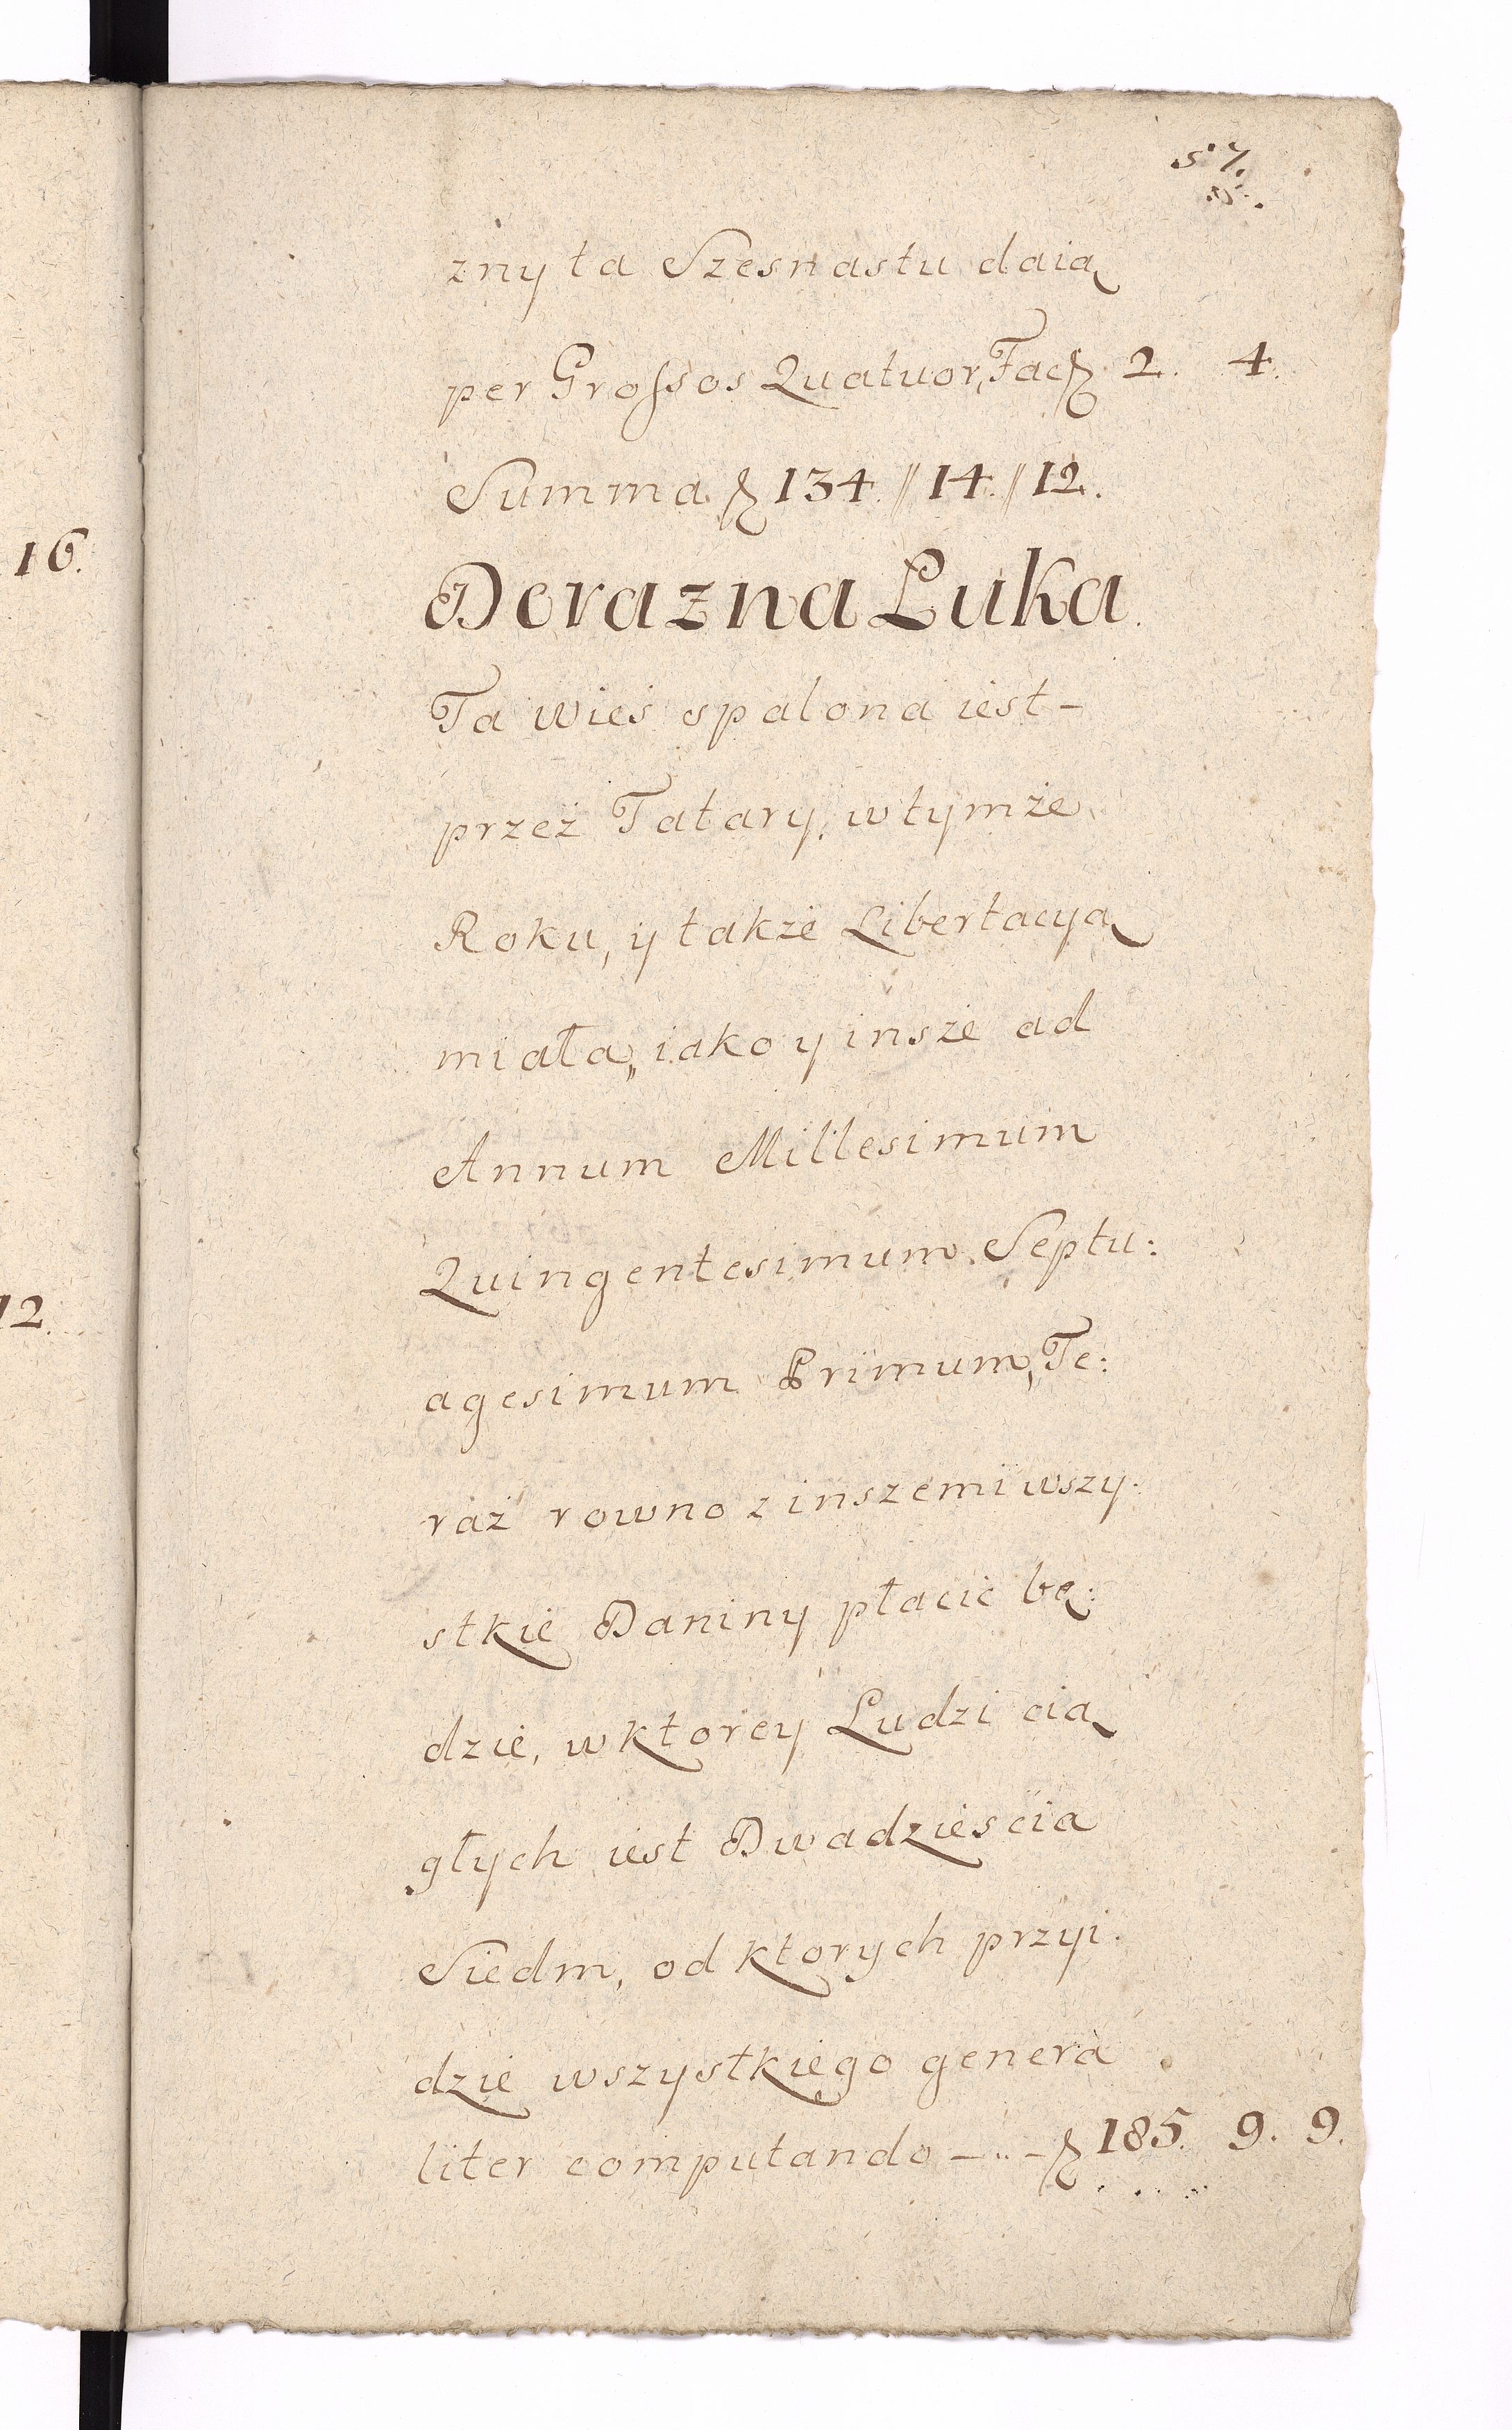 57.
zny ta Szesnastu daią
per Grossos Quatuor, Fac 2. 4.
Summa 134. // 14. // 12.
16.
Derazna Luka.
Ta wieś spalona iest -
przez Tatary, w tymże
Roku, y także Libertacyą
miała, iako y insze ad
Annum Millesimum
Quingentesimum Septu:
12.
agesimum Primum, Te:
raz rowno z inszemi wszy:
stkie Daniny płacic bę:
dzie, w ktorey Ludzi cią
głych iest Dwadziescia
Siedm, od ktorych przyi:
dzie wszystkiego genera
liter computando - .. - 185. 9. 9.